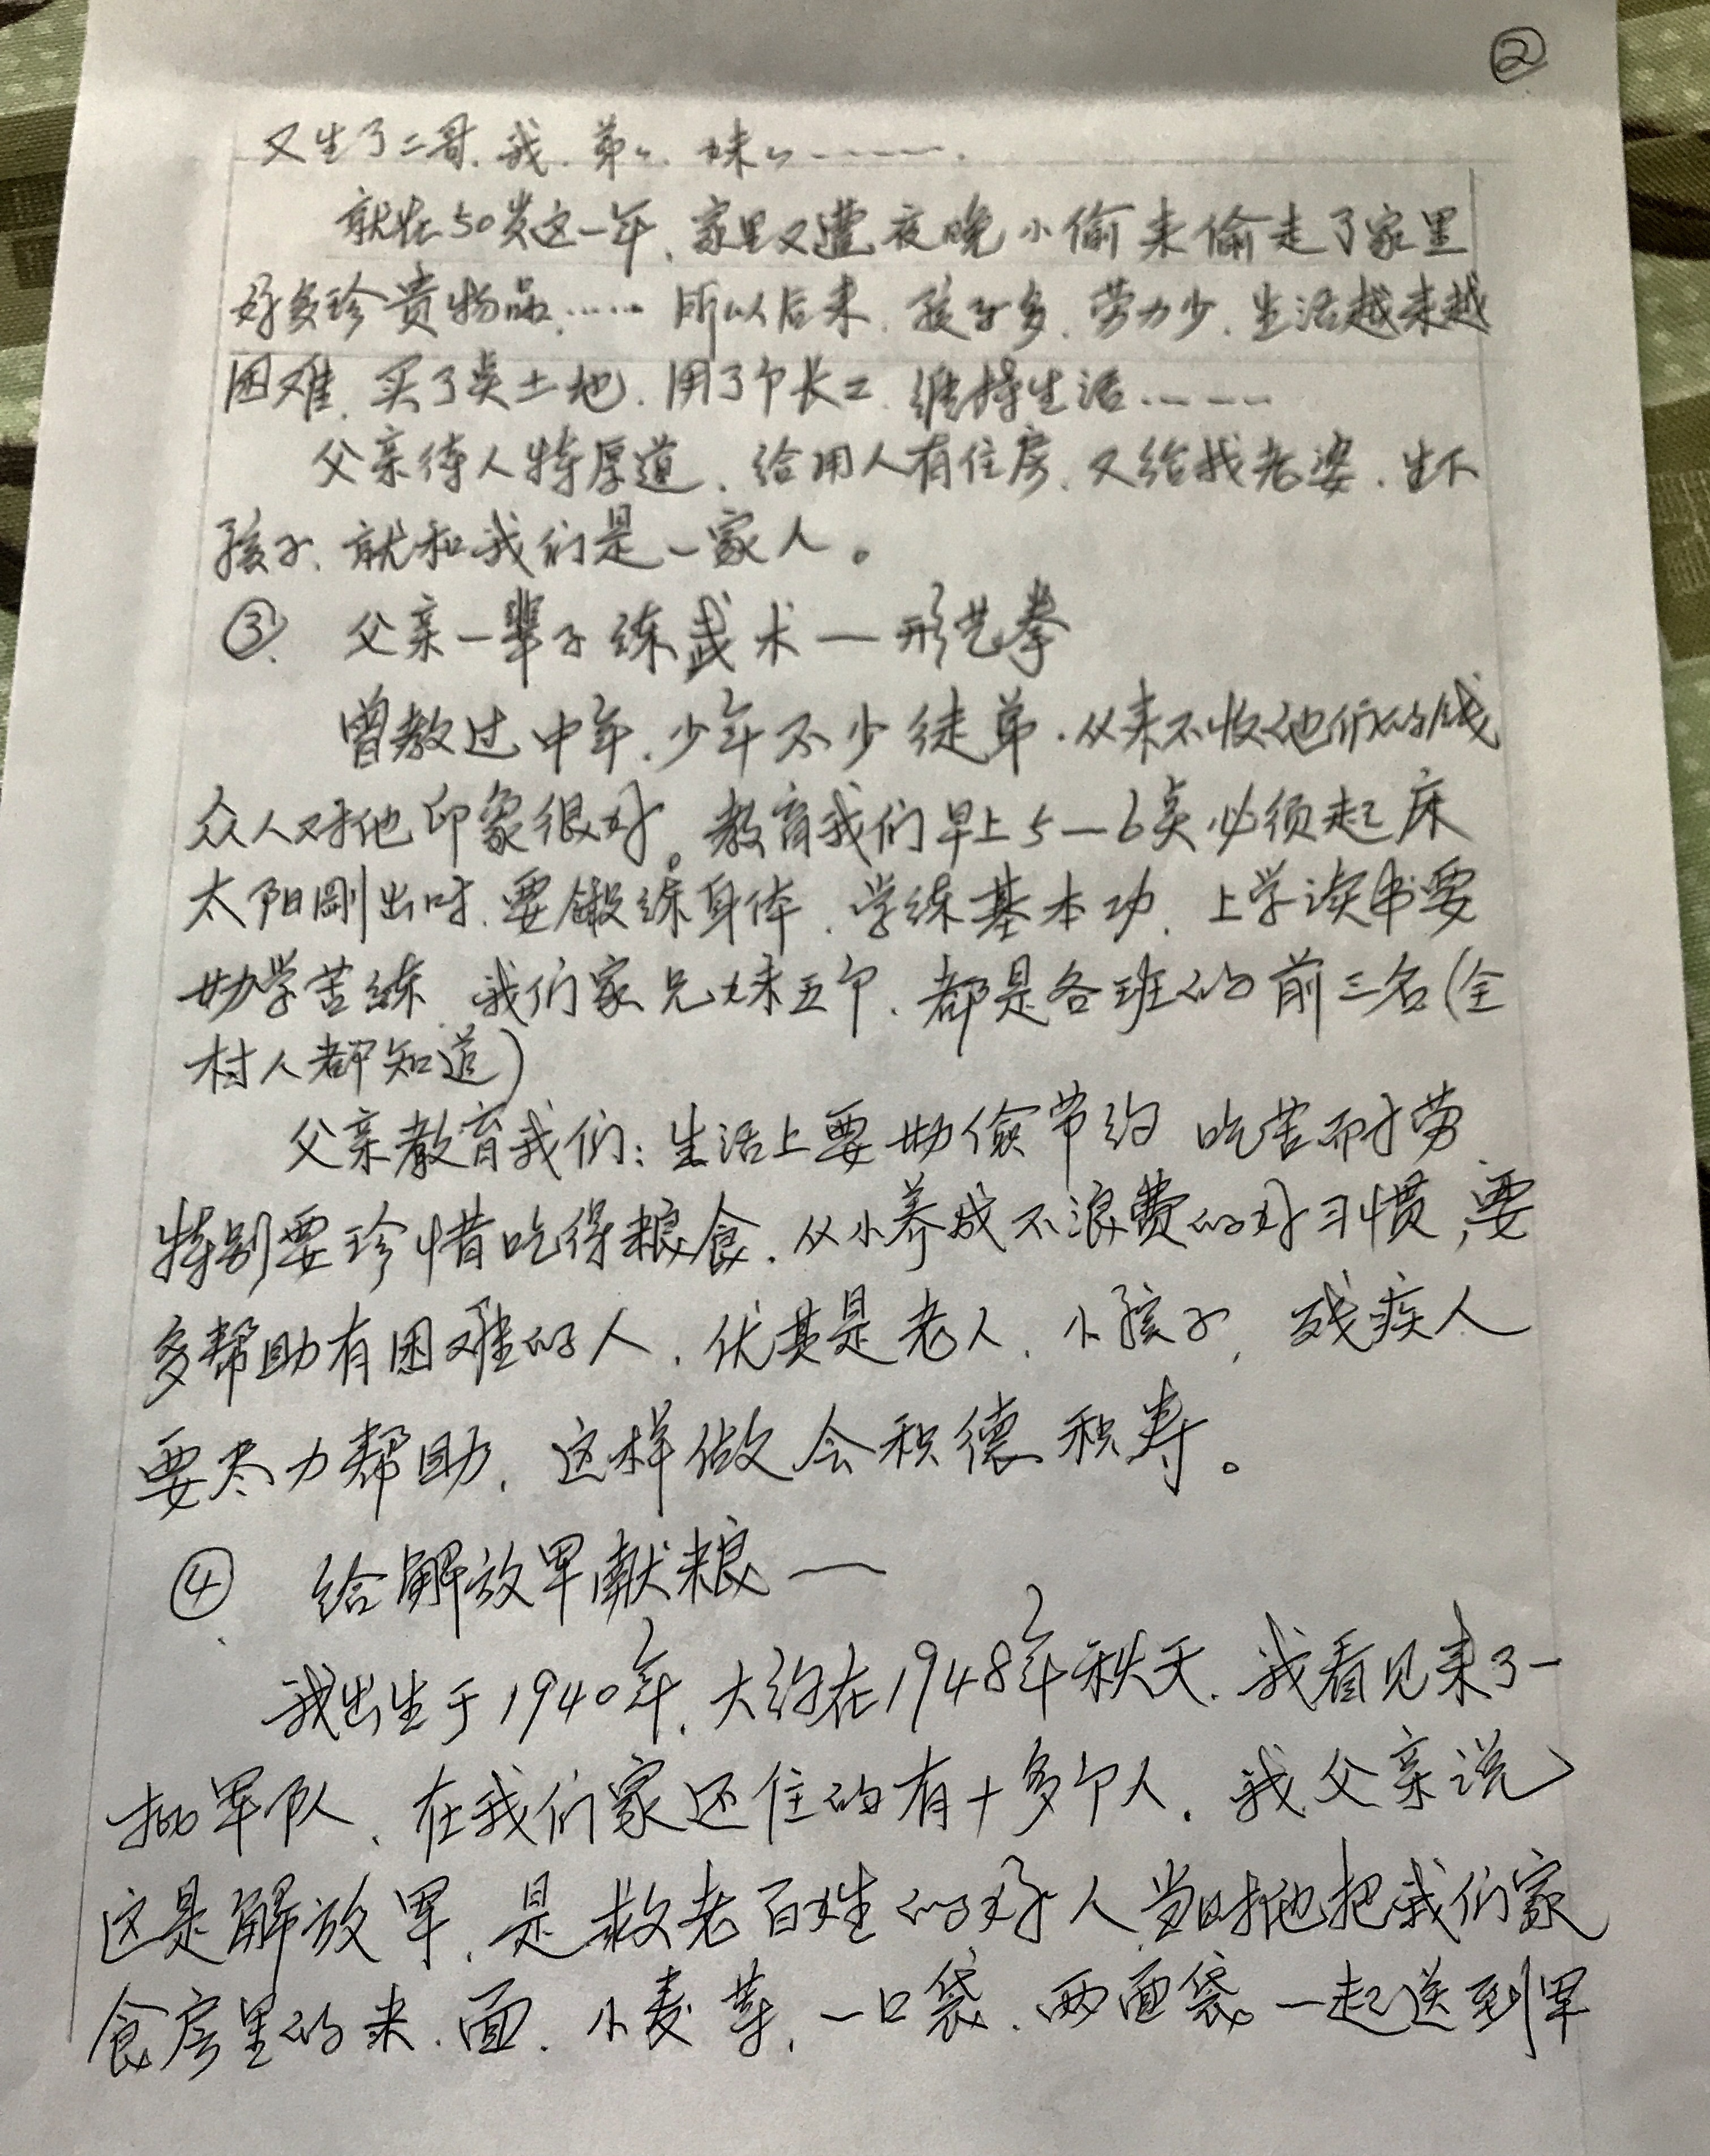 ②
又生了二哥、我、弟弟、妹妹-----.
就在50岁这一年、家里又遭夜晚小偷来偷走了家里
好多珍贵物品、…… 所以后来、孩子多、劳力少、生活越来越
困难、买了点土地、用了个长工、维持生活、----
父亲待人特厚道、给用人有住房、又给找老婆、生下
孩子、就和我们是一家人。
③、父亲一辈子练武术一形艺拳
曾教过中年、少年不少徒弟、从来不收他们的钱
众人对他印象很好。教育我们早上5—6点必须起床
太阳刚出时、要锻练身体、学练基本功、上学读书要
勤学苦练、我们家兄妹五个、都是各班的前三名(全
村人都知道)
父亲教育我们：生活上要勤俭节约 吃苦耐劳、
特别要珍惜吃得粮食、从小养成不浪费的好习惯，要
多帮助有困难的人、优其是老人、小孩子，残疾人
要尽力帮助、这样做会积德积寿。
④、给解放军献粮一
我出生于1940年、大约在1948年秋天、我看见来了一
批军队、在我们家还住的有十多个人、我父亲说
这是解放军、是救老百姓的好人、当时他把我们家
食房里的米、面、小麦等、一口袋、两面袋。一起送到军